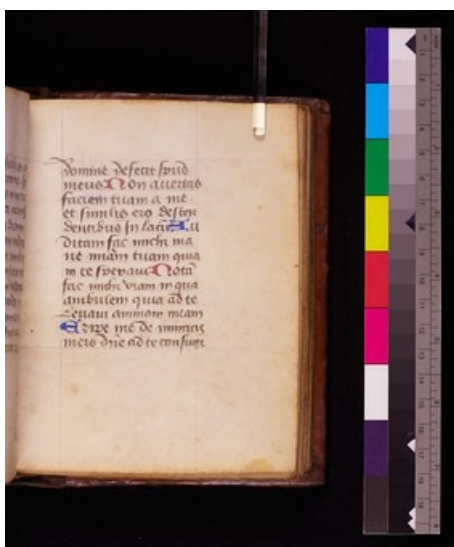 Domine defecit sp̄us
meus Non avertas
faciem tuam a me
et similis ero descen
dentibus in lacū Au
ditam fac michi ma
ne miām tuam quia
in te speravi Notā
fac michi viam in qua
ambulem quia ad te
levavi animam meam
Eripe me de inimicis
meis dn̄e ad te confugi